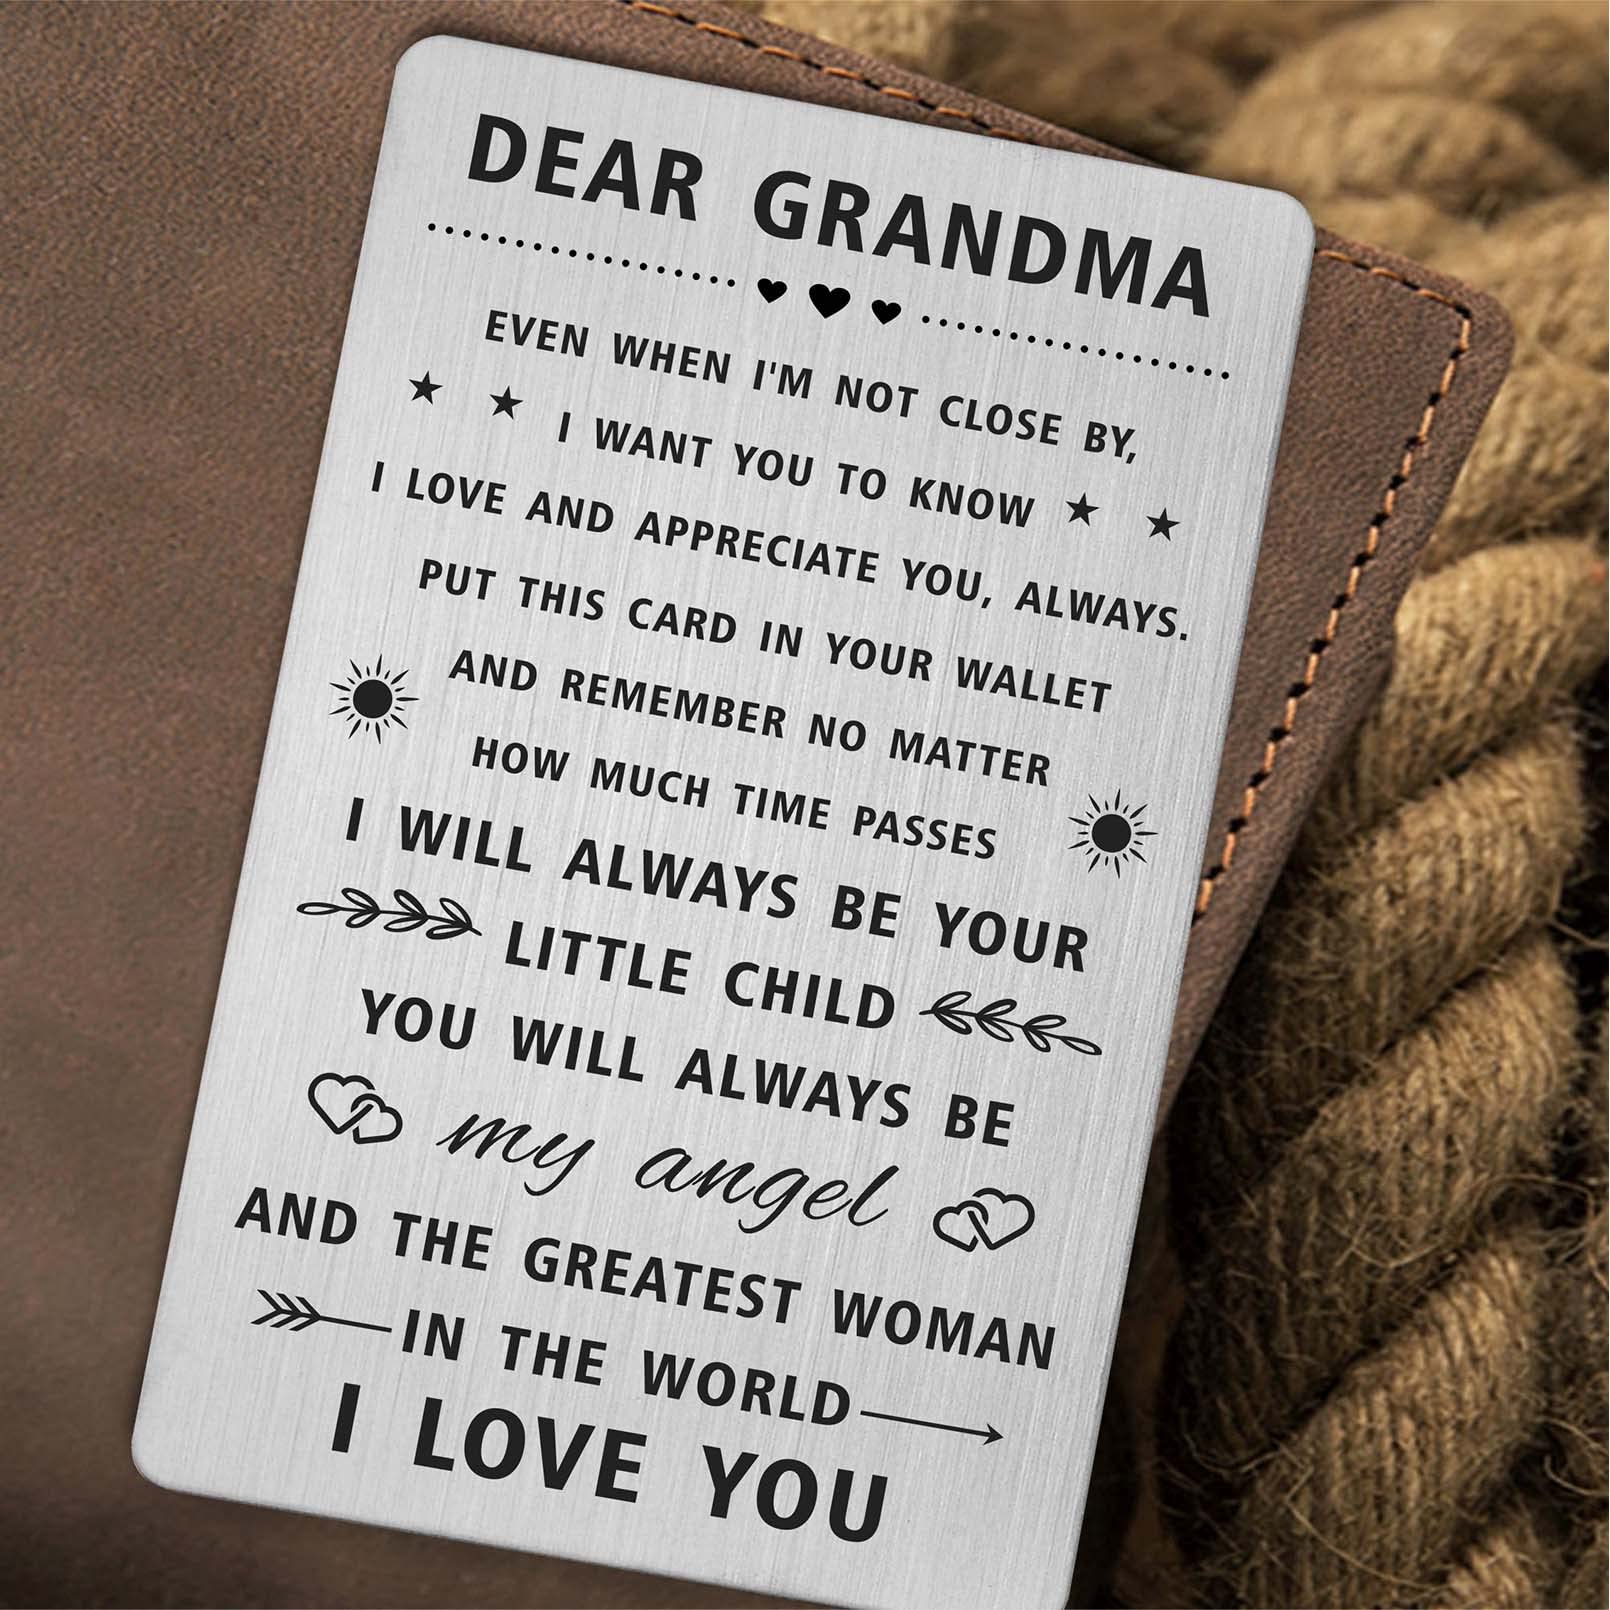 DEAR GRANDMA
EVEN WHEN I'M NOT CLOSE BY,
I WANT YOU TO KNOW
I LOVE AND APPRECIATE YOU, ALWAYS.
PUT THIS CARD IN YOUR WALLET
AND REMEMBER NO MATTER
HOW MUCH TIME PASSES
I WILL ALWAYS BE YOUR
LITTLE CHILD
YOU WILL ALWAYS BE
my angel
AND THE GREATEST WOMAN
IN THE WORLD
I LOVE YOU